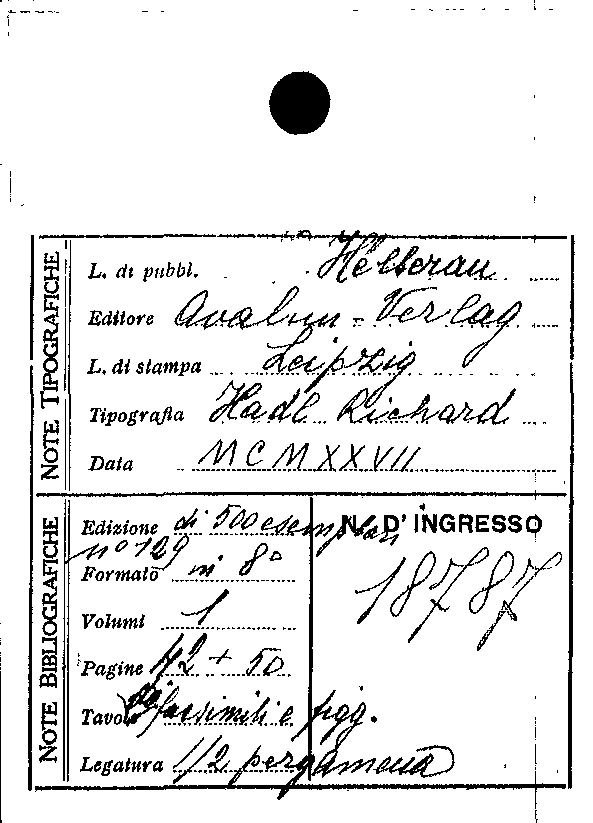 NOTE TIPOGRAFICHE
L. di pubbl. Hellerau
Editore Avalun-Verlag
L. di stampa Leipzig
Tipografia Hadl Richard
Data MCMXXVII
NOTE BIBLIOGRAFICHE
Edizione di 500 esemplari
n° 129
Formato in 8°
Volumi 1
Pagine 42 + 50
Tavole facsimili e figg.
Legatura 1/2 pergamena
N. D'INGRESSO
18787